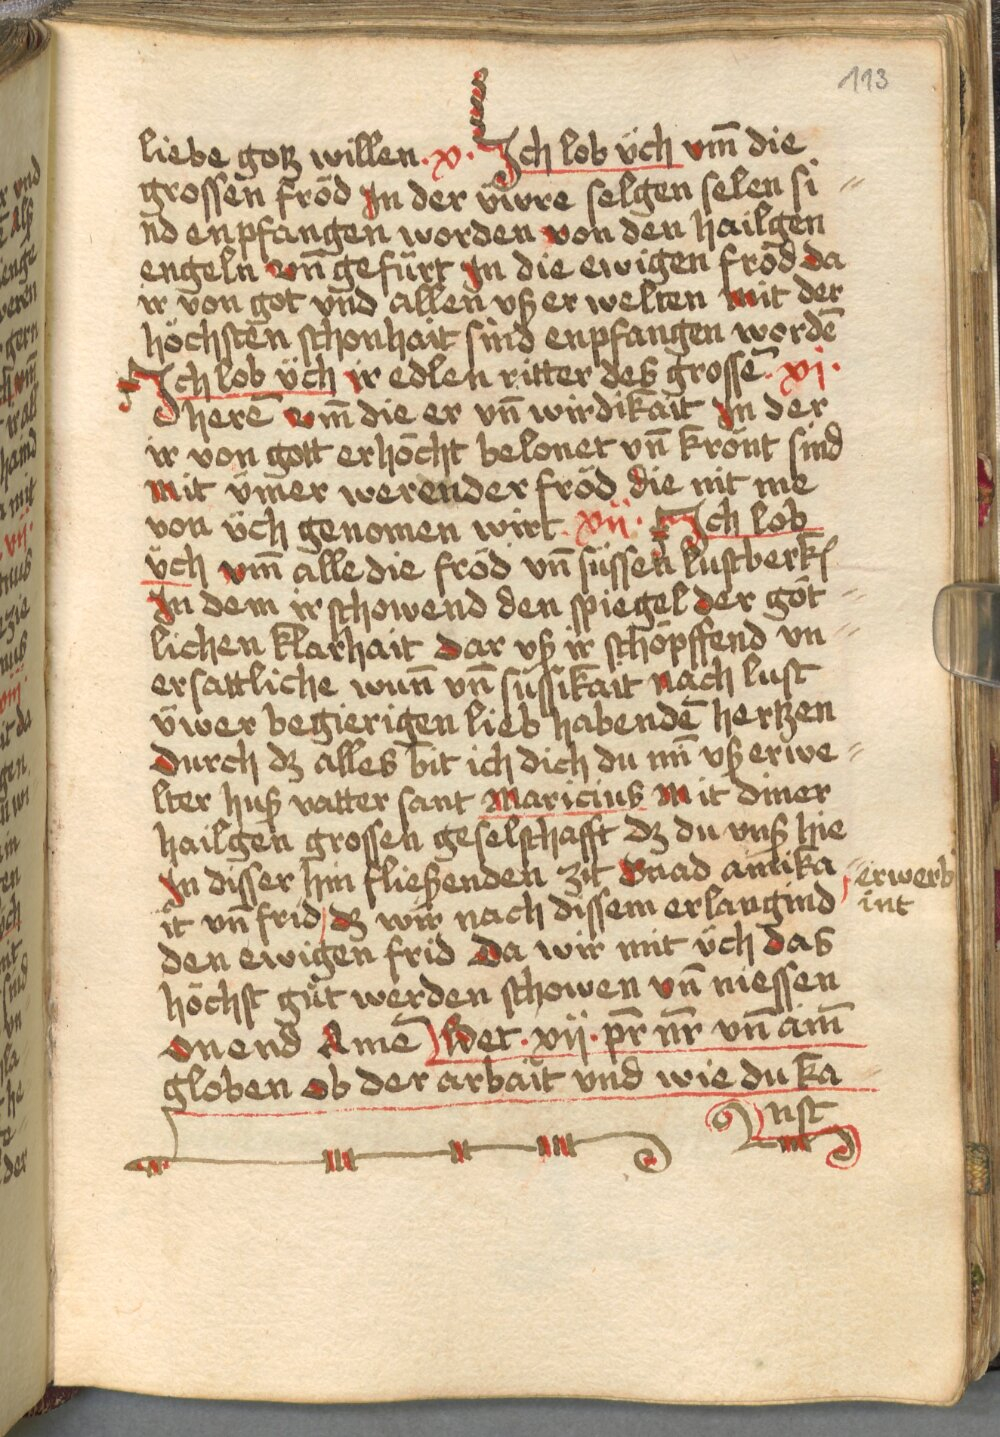 113
liebe gotz willen · x · Ich lob üch vm̄ die
grossen fröd In der üwre selgen selen si
nd enpfangen worden von den hailgen
engeln vn̄ gefürt In die ewigen fröd da
ir von got vnd allen vß er welten mit der
höchsten schonhait sind enpfangen wordē
Ich lob üch ir edlen ritter des grossē · xj ·
herē vm̄ die er vn̄ wirdikait In der
ir von gott erhöcht belonet vn̄ krönt sind
mit üm̄er werender fröd die nit me
von üch genomen wirt · xij · Ich lob
üch vm̄ alle die fröd vn̄ süssen lustberk
In dem ir schowend den spiegel der göt
lichen klarhait dar vß ir schöpffend vn
ersattliche wun̄ vn̄ süssikait nach lust
üwer begierigen lieb habendē hertzen
durch dz alles bit ich dich du min̄ vß erwe
lter huß vatter sant Maricius mit diner
hailgen grossen geselschafft dz du vnß hie
In disser hin fließenden zit gnad ainika
it vn̄ frid dz wir nach dissem erlangind
erwerb
int
den ewigen frid Da wir mit üch das
höchst güt werden schowen vn̄ niessen
on end Amē Bet · xij · pr̄ nr̄ vn̄ ainn̄
globen ob der arbait vnd wie du ka
nst